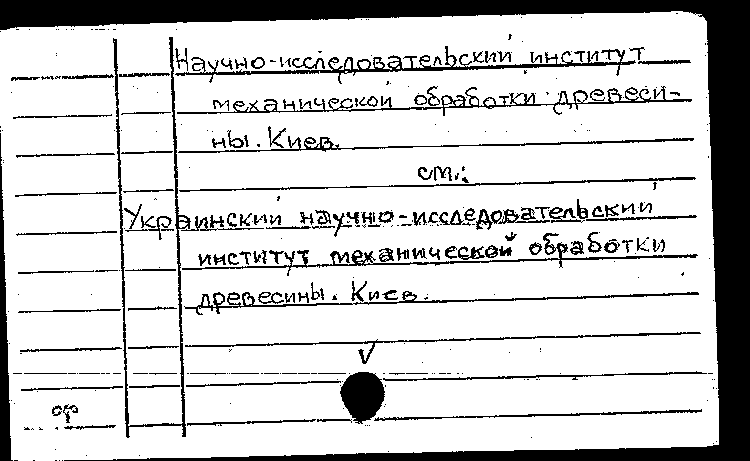 Научно-исследовательский институт
механической обработки древеси-
ны. Киев.
см.:
Украинский научно-исследовательский
институт механической обработки
древесины. Киев.